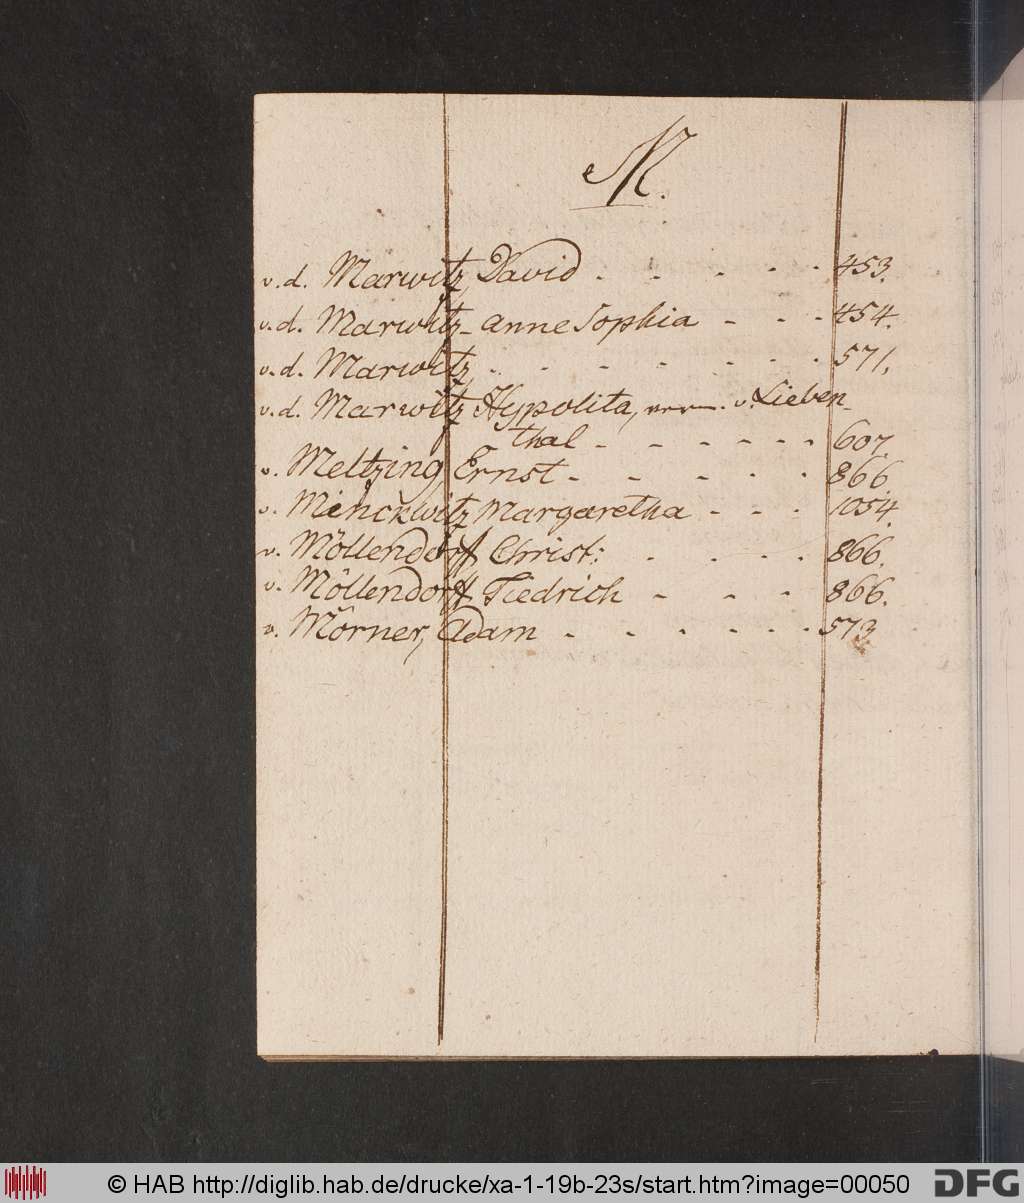 M.
v.d. Marwitz, David - - - - - 453.
v.d. Marwitz - Anne Sophia - - - 454.
v.d. Marwitz - - - - - - - 571.
v.d. Marwitz Hypolita, verm. v. Lieben-
thal - - - - - - 607.
v. Meltzing Ernst - - - - - 866
v. Minckwitz Margaretha - - - 1054.
v. Möllendorff Christ: - - - - 866.
v. Möllendorff Fiedrich - - - 866.
v. Mörner, Adam - - - - - - 573
© HAB http://diglib.hab.de/drucke/xa-1-19b-23s/start.htm?image=00050
DFG